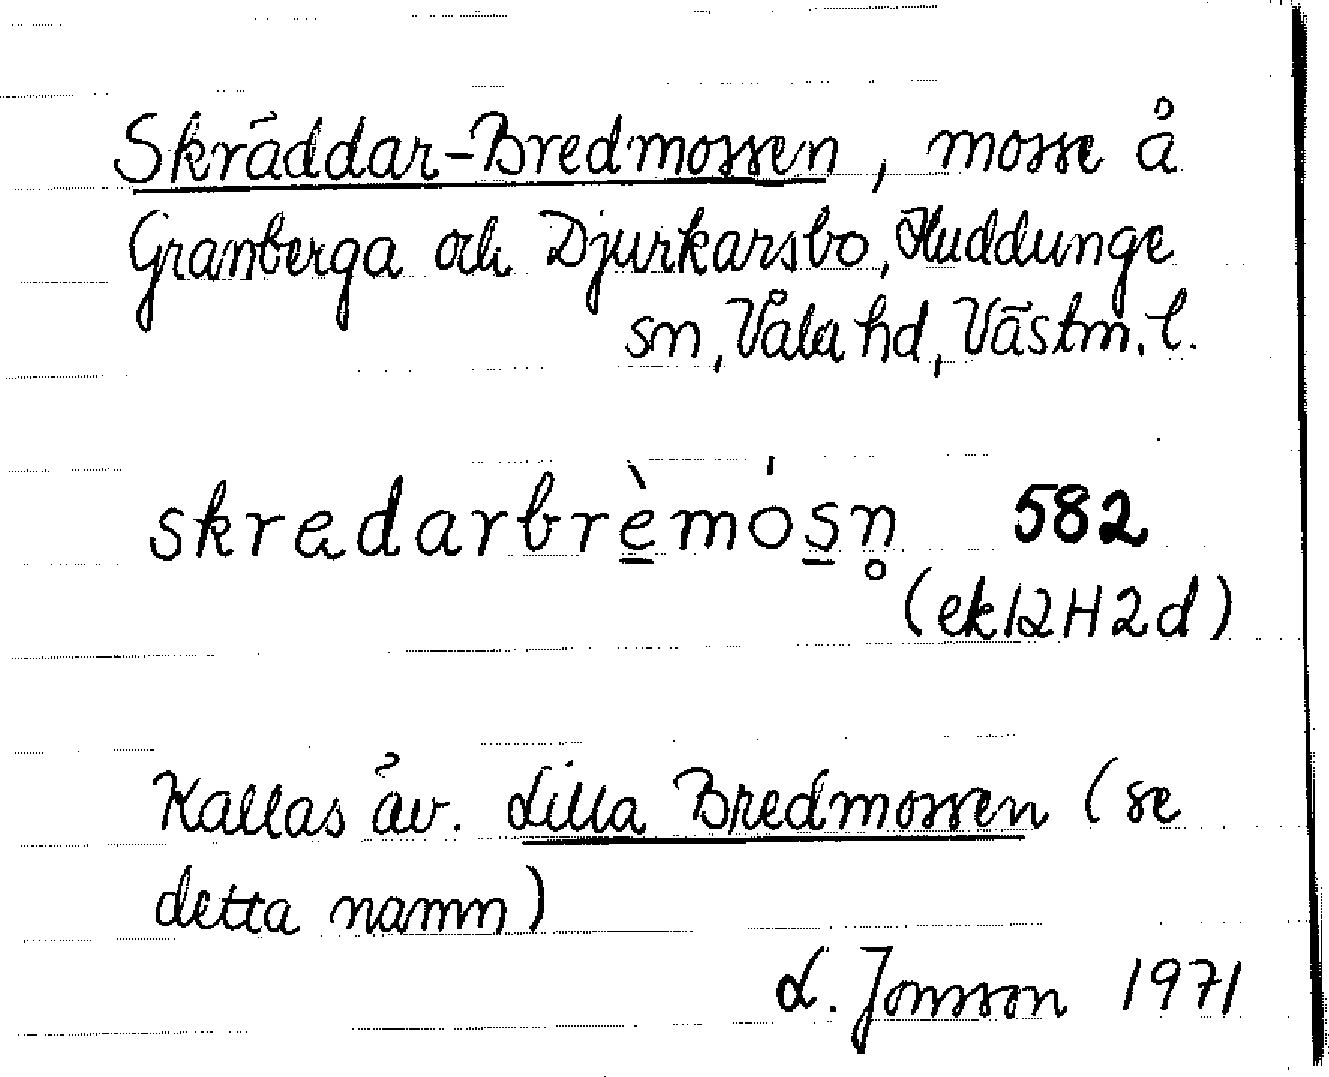 Skräddar-Bredmossen, mosse å
Granberga och Djurkarsbo, Huddunge
sn, Våla hd, Västm. l.
skredarbrèmósn̥ 582
(ek 12H2d)
Kallas äv. Lilla Bredmossen (se
detta namn)
L. Jonsson 1971